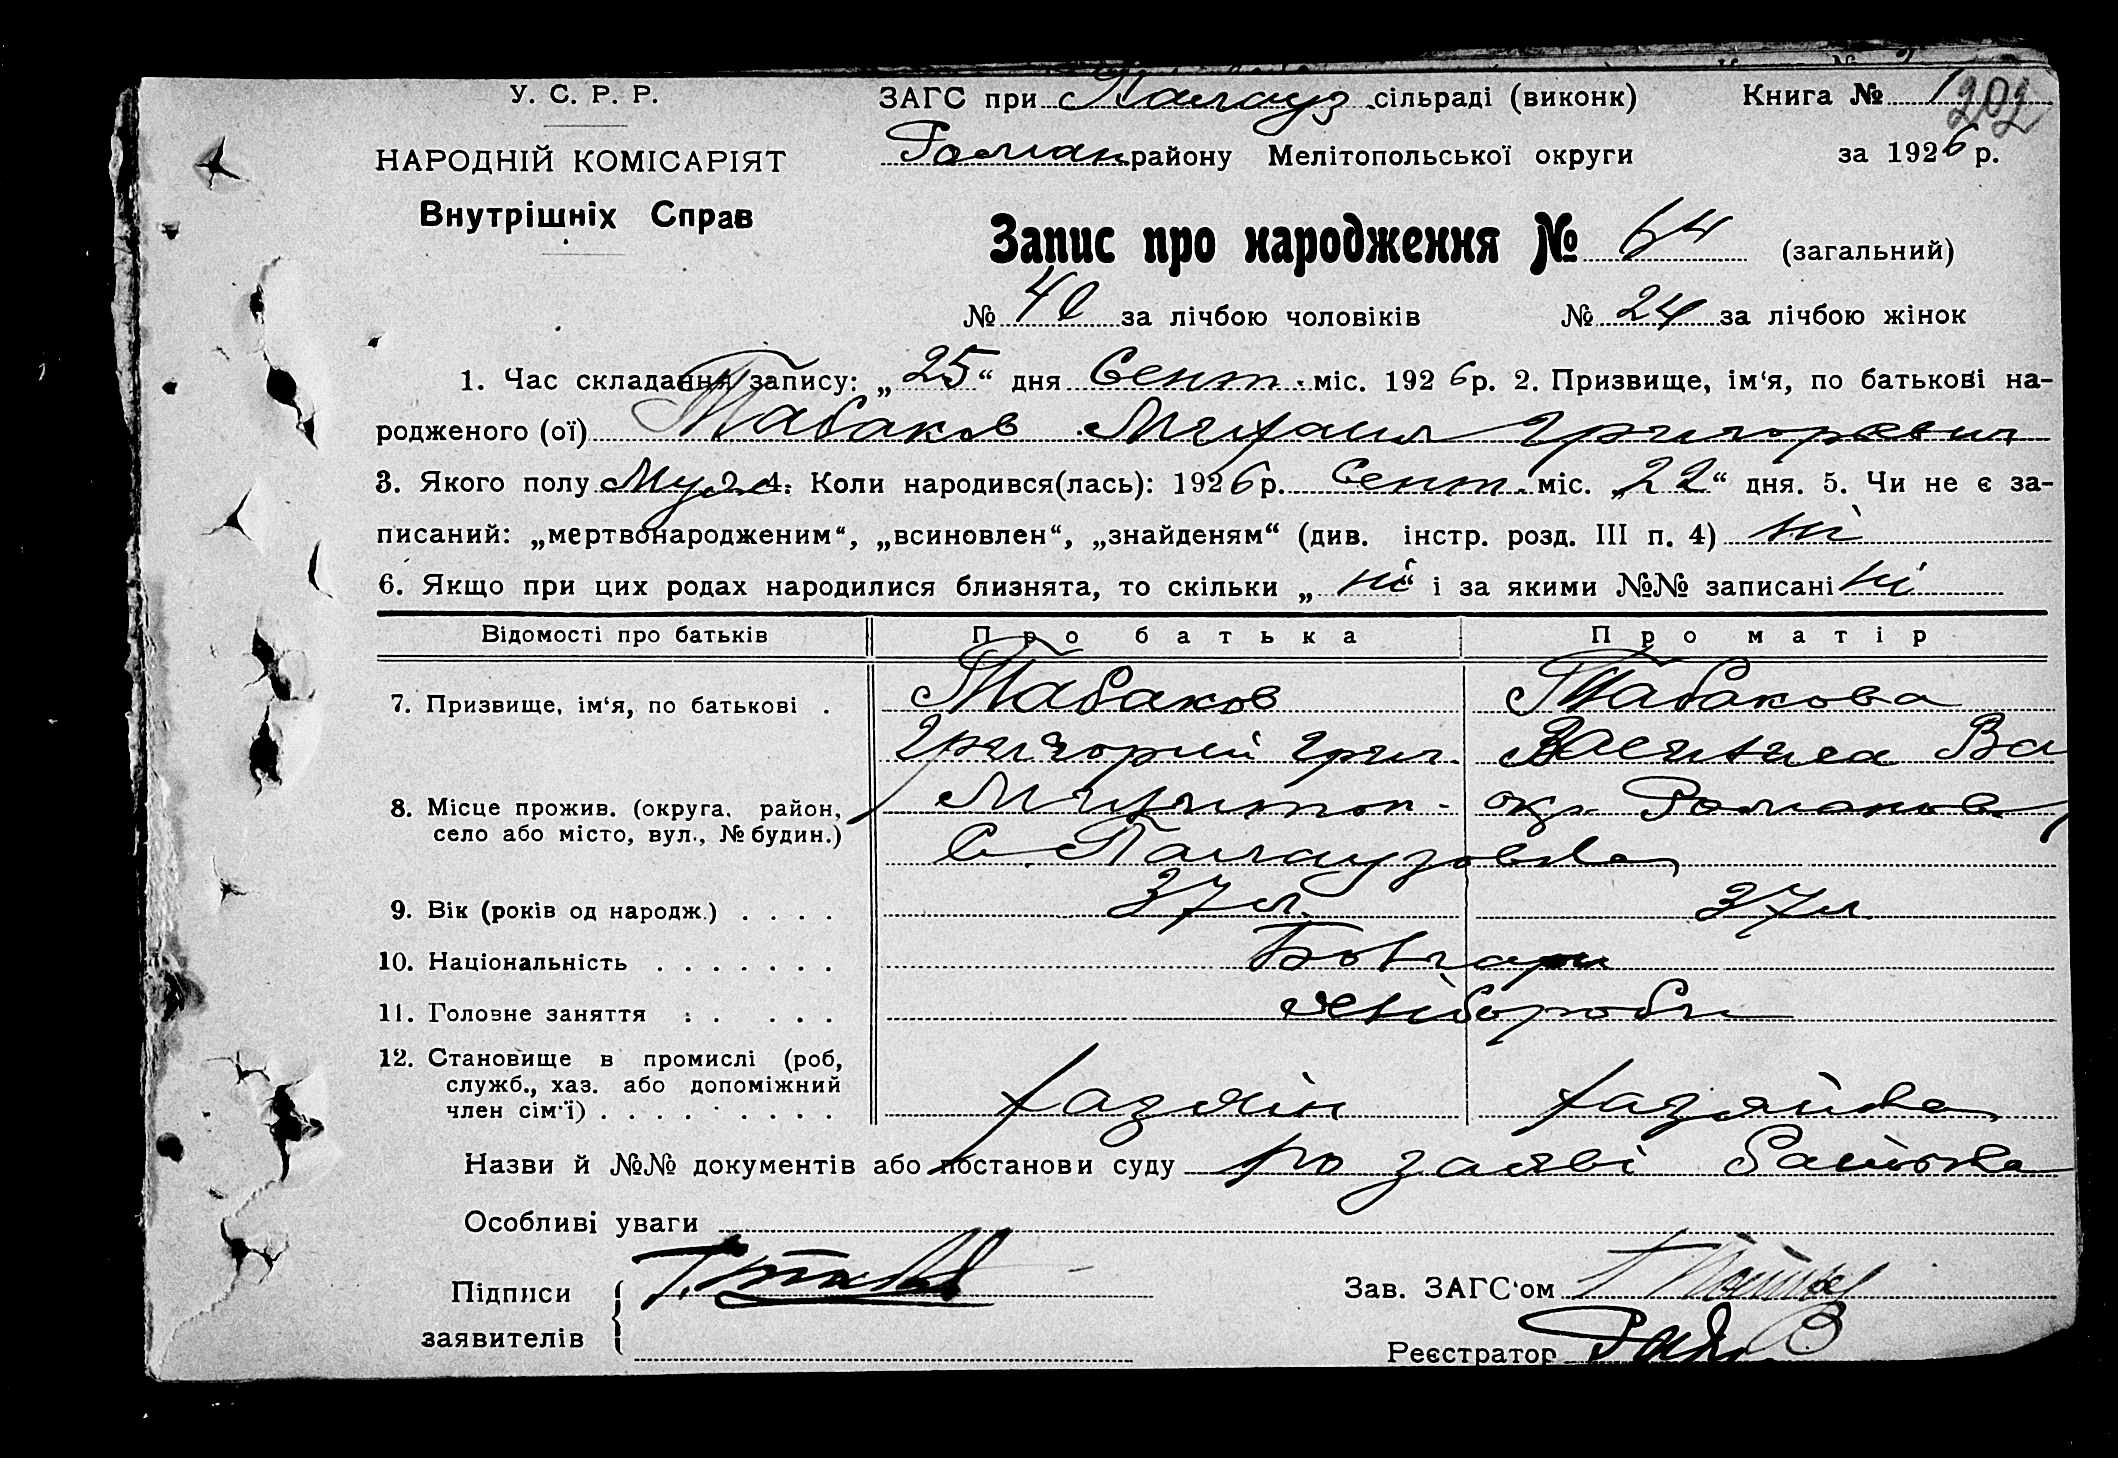 У. С. Р. Р.
НАРОДНІЙ КОМІСАРІЯТ
Внутрішніх Справ
ЗАГС при Палауз. сільраді (виконк) Книга № 1 202
Роман. району Мелітопольської округи за 1926 р.
Запис про народження № 64 (загальний)
№ 40 за лічбою чоловіків № 24 за лічбою жінок
1. Час складання запису: „25“ дня Сент. міс. 1926 р. 2. Призвище, ім‘я, по батькові на-
родженого (ої) Табаков Михаил Григоревич
3. Якого полу Муж. 4. Коли народився(лась): 1926 р. Сент. міс. „22“ дня. 5. Чи не є за-
писаний: „мертвонародженим“, „всиновлен“, „знайденям“ (див. інстр. розд. III п. 4) ні
6. Якщо при цих родах народилися близнята, то скільки „ні“ і за якими №№ записані ні
Відомості про батьків Про батька Про матір
7. Призвище, ім‘я, по батькові . Табаков Табакова
Григорий Григ. Василиса Ва
8. Місце прожив. (округа, район, село або місто, вул., № будин.) Мелитоп. окр. Романов.
с. Палаузовка
9. Вік (років од народж.) . . . . 37 л. 37 л.
10. Національність . . . . . . . Бовгари
11. Головне заняття : . . . . хліборобы
12. Становище в промислі (роб, служб., хаз. або допоміжний член сім‘ї) . . . . . . . . . хазяін хазяйка
Назви й №№ документів або постанови суду по заяві батька
Особливі уваги
Підписи
заявителів
Зав. ЗАГС‘ом
Реєстратор